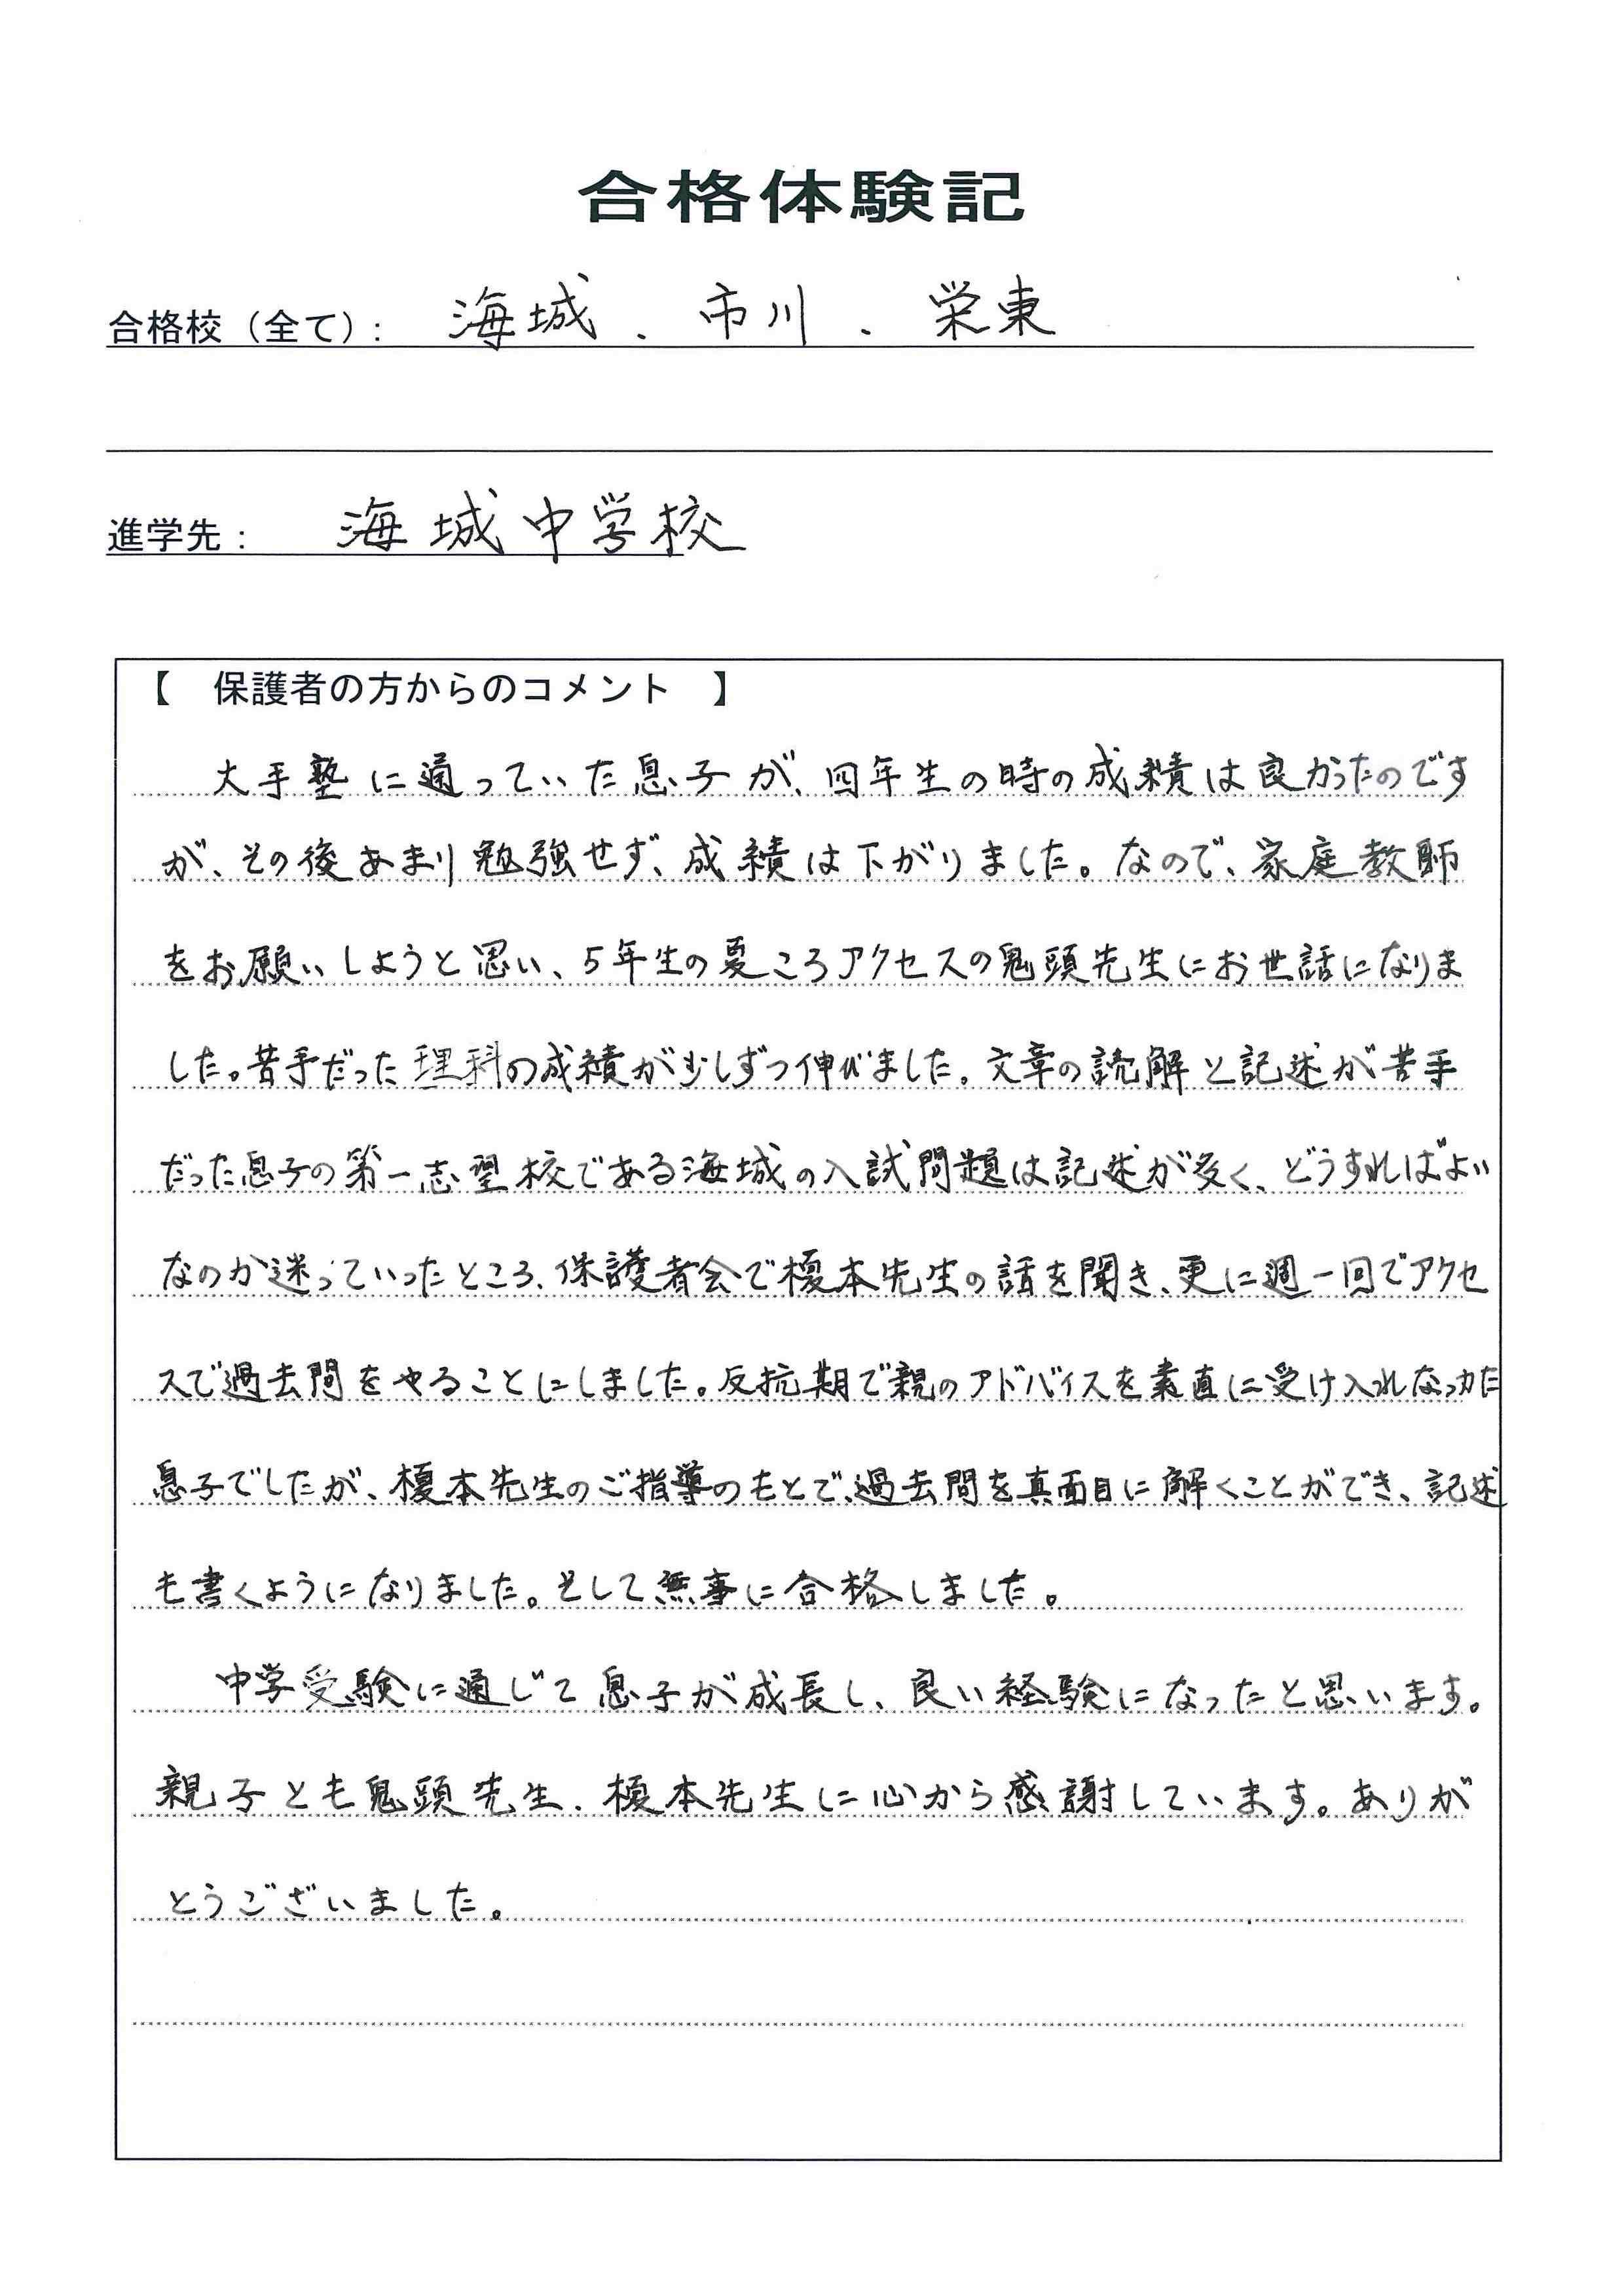 合格体験記
合格校（全て）: 海城、市川、栄東
進学先： 海城中学校
【 保護者の方からのコメント 】
大手塾に通っていた息子が、四年生の時の成績は良かったのです
が、その後あまり勉強せず、成績は下がりました。なので、家庭教師
をお願いしようと思い、5年生の夏ころアクセスの鬼頭先生にお世話になりま
した。苦手だった理科の成績が少しずつ伸びました。文章の読解と記述が苦手
だった息子の第一志望校である海城の入試問題は記述が多く、どうすればよい
なのか迷っていったところ、保護者会で榎本先生の話を聞き、更に週一回でアクセ
スで過去問をやることにしました。反抗期で親のアドバイスを素直に受け入れなっかた
息子でしたが、榎本先生のご指導のもとで、過去問を真面目に解くことができ、記述
も書くようになりました。そして無事に合格しました。
中学受験に通じて息子が成長し、良い経験になったと思います。
親子とも鬼頭先生、榎本先生に心から感謝しています。ありが
とうございました。